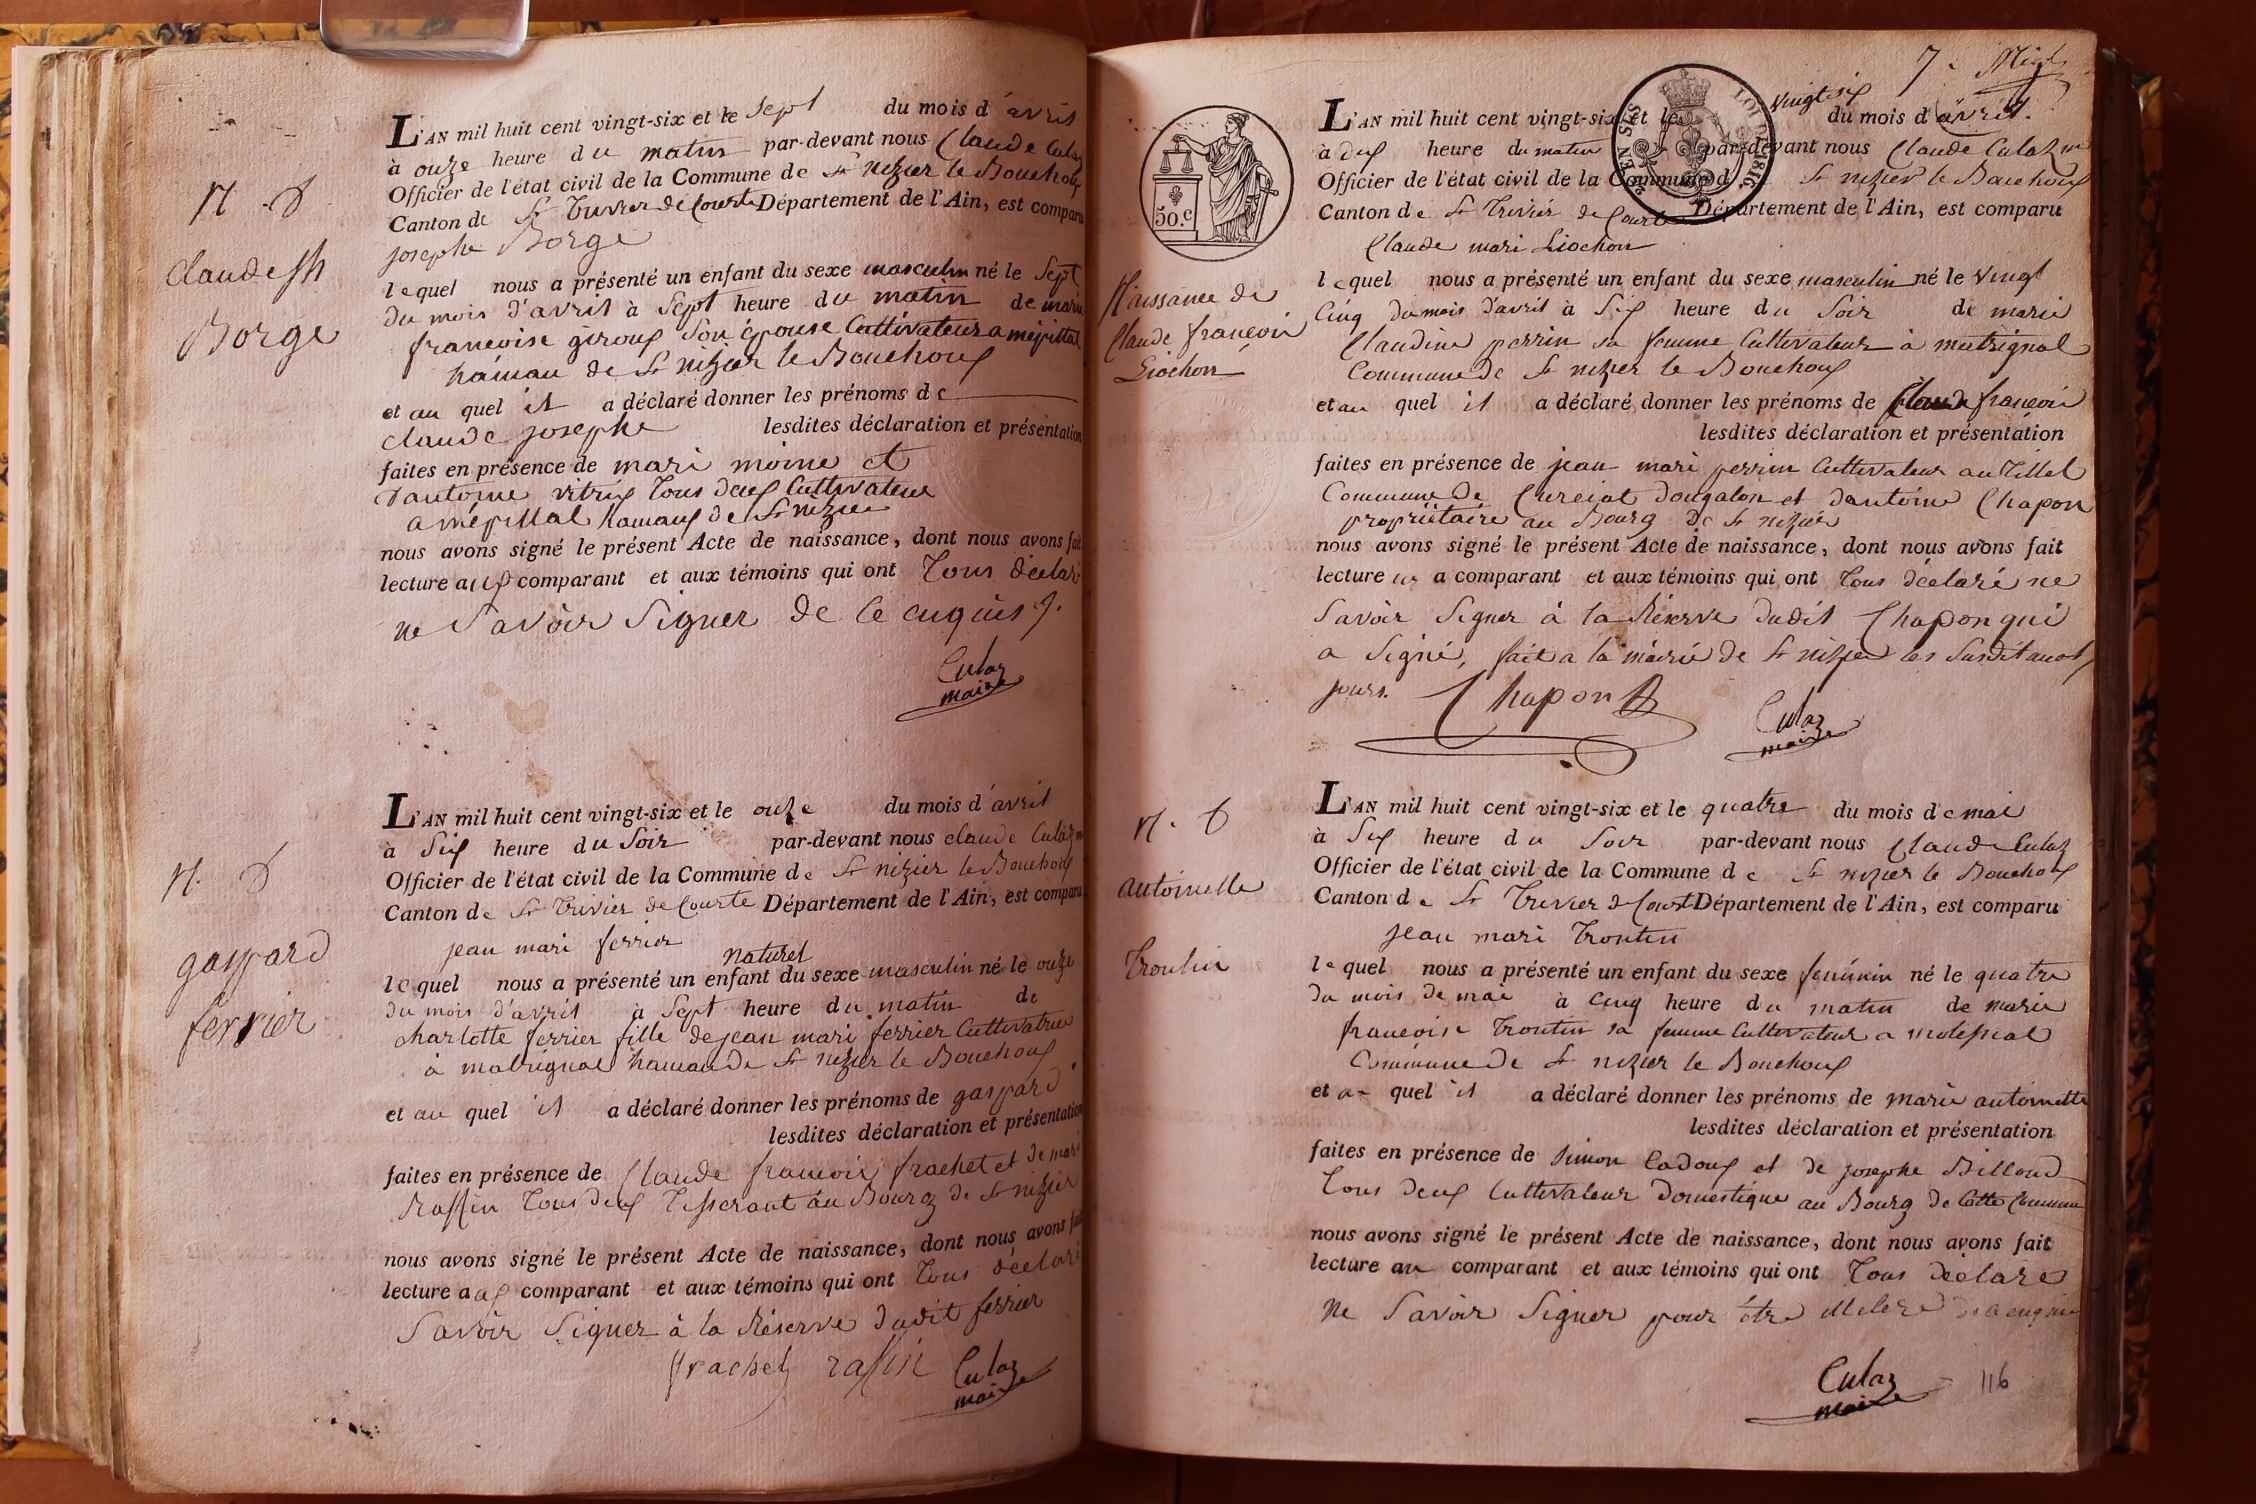 N. D
Claude Jh
Borge
L'AN mil huit cent vingt-six et le Sept du mois d'avril
à onze heure du matin par-devant nous Claude Culaz
Officier de l'état civil de la Commune de St nizier le Bouchoux
Canton de St Trivier de Courte Département de l'Ain, est comparu
josephe Borge
lequel nous a présenté un enfant du sexe masculin né le Sept
du mois d'avril à Sept heure du matin de marie
francoise giroux Son épouse Cultivateur a mépillat
hamau de St nizier le Bouchoux
et au quel il a déclaré donner les prénoms de
claude josephe lesdites déclaration et présentation
faites en présence de mari moine et
dantoine vitrix Tous deux Cultivateur
a mépillat hamaux de St nizier
nous avons signé le présent Acte de naissance, dont nous avons fait
lecture aux comparant et aux témoins qui ont Tous déclaré
ne Savoir Signer de ce enquis
Culaz
maire
N. D
gaspard
ferrier
L'AN mil huit cent vingt-six et le onze du mois d'avril
à Six heure du Soir par-devant nous claude Culaz
Officier de l'état civil de la Commune de St nizier le Bouchoux
Canton de St Trivier de Courte Département de l'Ain, est comparu
jean mari ferrier
naturel
lequel nous a présenté un enfant du sexe masculin né le onze
du mois d'avril à Sept heure du matin de
charlotte ferrier fille de jean mari ferrier Cultivatrice
à matrignat hamau de St nizier le Bouchoux
et au quel il a déclaré donner les prénoms de gaspard
lesdites déclaration et présentation
faites en présence de Claude francois frachet et de mari
Raffin Tous deux Tisserant au Bourg de St nizier
nous avons signé le présent Acte de naissance, dont nous avons fait
lecture aux comparant et aux témoins qui ont Tous déclaré
Savoir Signer à la Réserve dudit ferrier
frachet rafin Culaz
maire
7.
50.c
LOI DE 1816
Naissance de
Claude francois
Liochon
L'AN mil huit cent vingt-six et le vingt six du mois d'avril.
à dix heure du matin par-devant nous Claude Culaz
Officier de l'état civil de la Commune d St nizier le Bouchoux
Canton de St Trivier de Courte Département de l'Ain, est comparu
Claude mari Liochon
lequel nous a présenté un enfant du sexe masculin né le vingt
Cinq du mois d'avril à Six heure du Soir de marie
Claudine perrin sa femme Cultivateur à matrignat
Commune de St nizier le Bouchoux
et au quel il a déclaré donner les prénoms de Claude francois
lesdites déclaration et présentation
faites en présence de jean mari perrin Cultivateur au Tillet
Commune de Curciat dongalon et dantoine Chapon
propriétaire au Bourg de St nizier
nous avons signé le présent Acte de naissance, dont nous avons fait
lecture a comparant et aux témoins qui ont Tous déclaré ne
Savoir Signer à la Réserve dudit Chapon qui
a Signé, fait a la mairie de St nizier les Susdit
jours. Chapon
Culaz
maire
N. D
antoinette
Troutin
L'AN mil huit cent vingt-six et le quatre du mois de mai
à Six heure du Soir par-devant nous Claude Culaz
Officier de l'état civil de la Commune de St nizier le Bouchoux
Canton de St Trivier de Court Département de l'Ain, est comparu
jean mari Troutin
lequel nous a présenté un enfant du sexe feminin né le quatre
du mois de mai à Cinq heure du matin de marie
francoise Troutin sa femme Cultivateur a
Commune de St nizier le Bouchoux
et a quel il a déclaré donner les prénoms de marie antoinette
lesdites déclaration et présentation
faites en présence de Simon Cadoux et de josephe Billoud
Tous deux Cultivateur Domestique au Bourg de Cette Commune
nous avons signé le présent Acte de naissance, dont nous avons fait
lecture au comparant et aux témoins qui ont Tous déclaré
ne Savoir Signer pour être
Culaz
maire
116